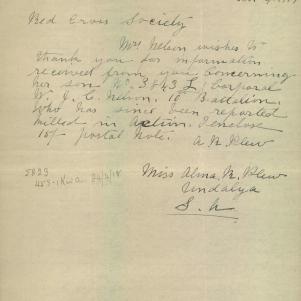 Red Cross Society
Mrs Nelson wishes to
thank you for information
received from you concerning
her son No. 3843 L. Corporal
W. J. C. Nelson, 10 Battalion,
who has since been reported
killed in action. I enclose
10/- postal note.
A. N. Blew
Miss Alma N. Blew
Undalya
S. A
5823